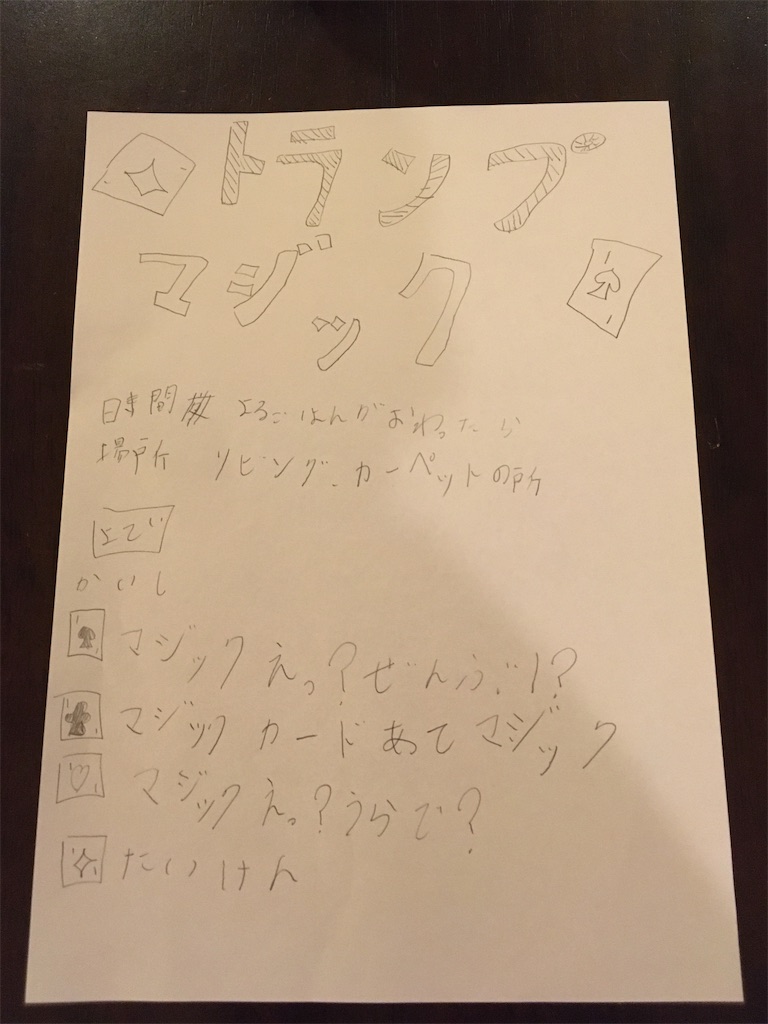 トランプ
マジック
時間 よるごはんがおわったら
場所 リビング、カーペットの所
よてい
かいし
マジック えっ?ぜんぶ1?
マジック カードあてマジック
マジック えっ?うらで?
たいけん